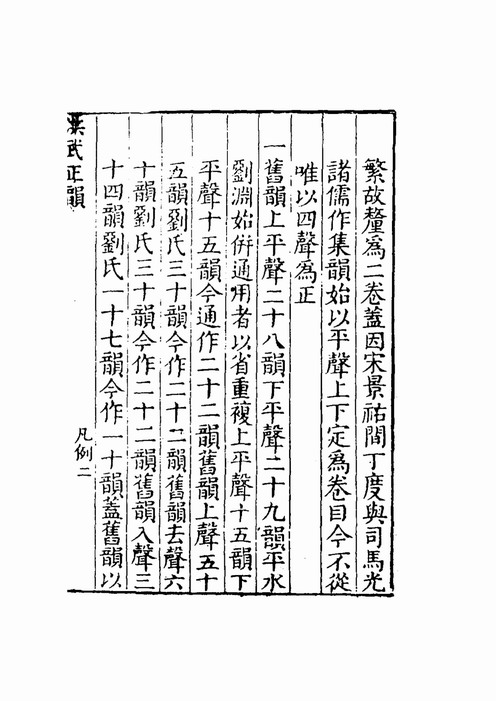 繁故釐爲二卷蓋因宋景祐間丁度與司馬光
諸儒作集韻始以平聲上下定爲卷目今不從
唯以四聲爲正
一舊韻上平聲二十八韻下平聲二十九韻平水
劉淵始倂通用者以省重複上平聲十五韻下
平聲十五韻今通作二十二韻舊韻上聲五十
五韻劉氏三十韻今作二十二韻舊韻去聲六
十韻劉氏三十韻今作二十二韻舊韻入聲三
十四韻劉氏一十七韻今作一十韻蓋舊韻以
洪武正韻
凡例二